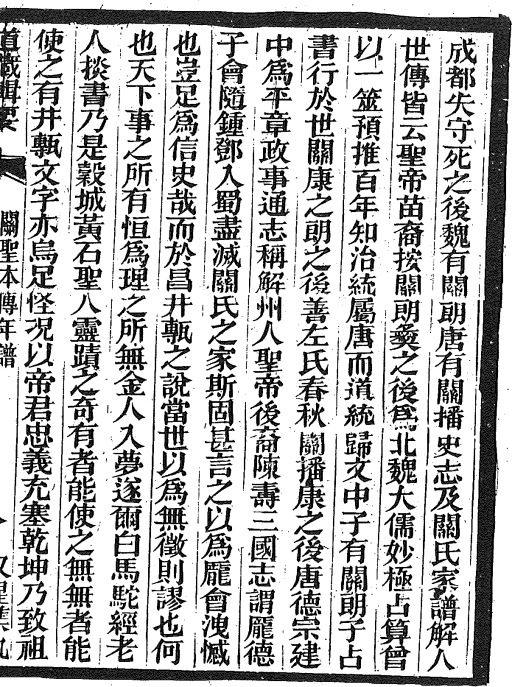 成都失守死之後魏有關朗唐有關播史志及關氏家譜解人
世傳皆云聖帝苗裔按關朗彝之後爲北魏大儒妙極占算曾
以一筮預推百年知治統屬唐而道統歸文中子有關朗子占
書行於世關康之朗之後善左氏春秋關播康之後唐德宗建
中爲平章政事通志稱解州人聖帝後裔陳壽三國志謂龐德
子會隨鍾鄧入蜀盡滅關氏之家斯固甚言之以爲龐會洩憾
也豈足爲信史哉而於昌井甎之說當世以爲無徵則謬也何
也天下事之所有恒爲理之所無金人入夢遂爾白馬駝經老
人掞書乃是榖城黃石聖人靈蹟之奇有者能使之無無者能
使之有井甎文字亦烏足怪况以帝君忠義充塞乾坤乃致祖
道藏輯要 關聖本傳年譜